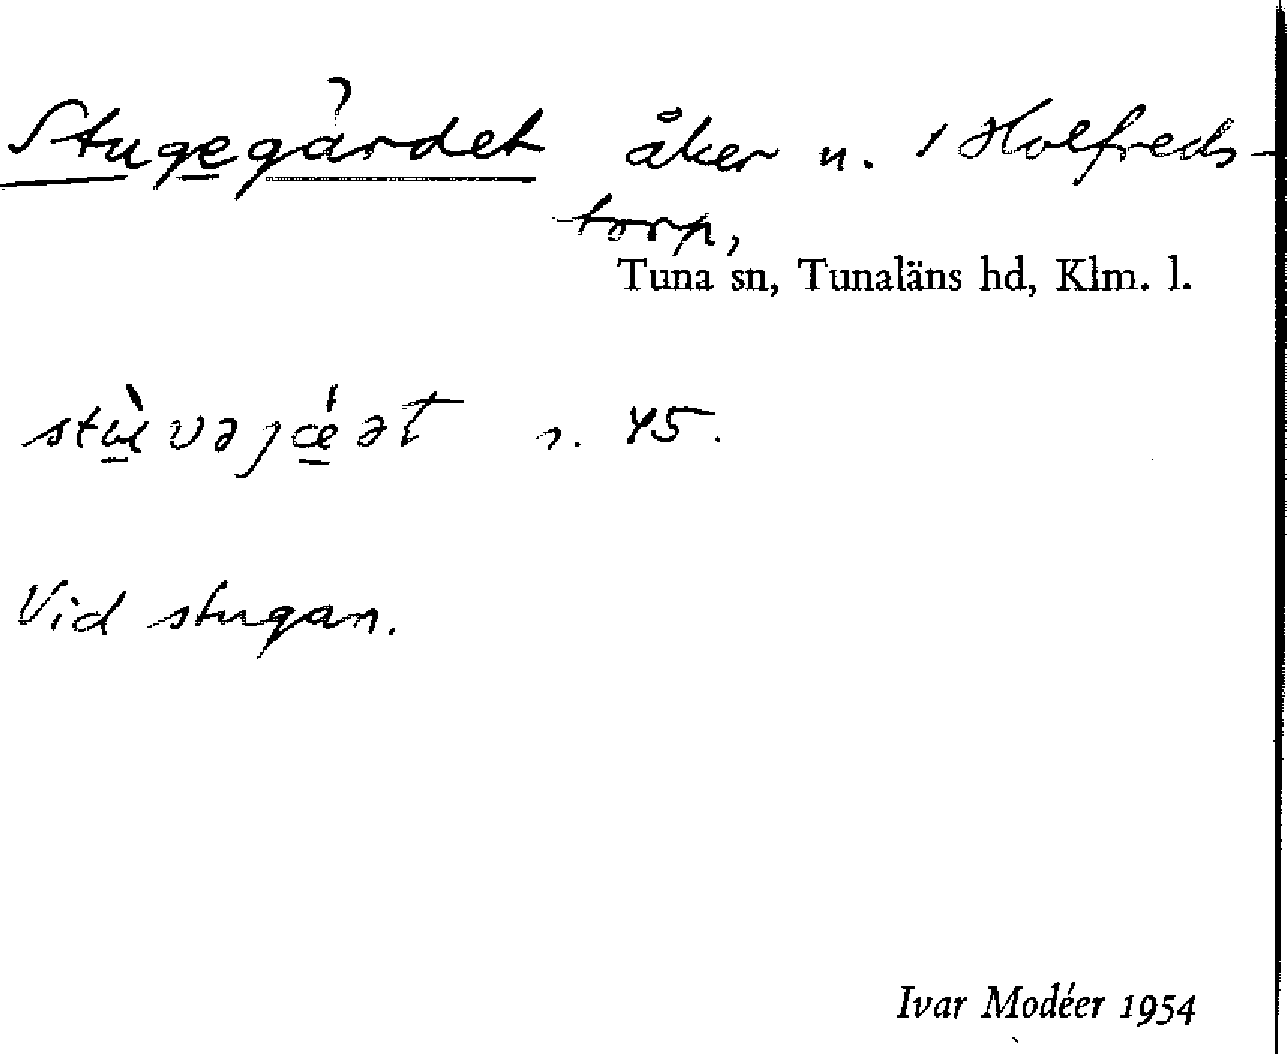 Stugegärdet åker n. 1 Holfreds-
torp,
Tuna sn, Tunaläns hd, Klm. l.
n. 45.
Vid stugan.
Ivar Modéer 1954